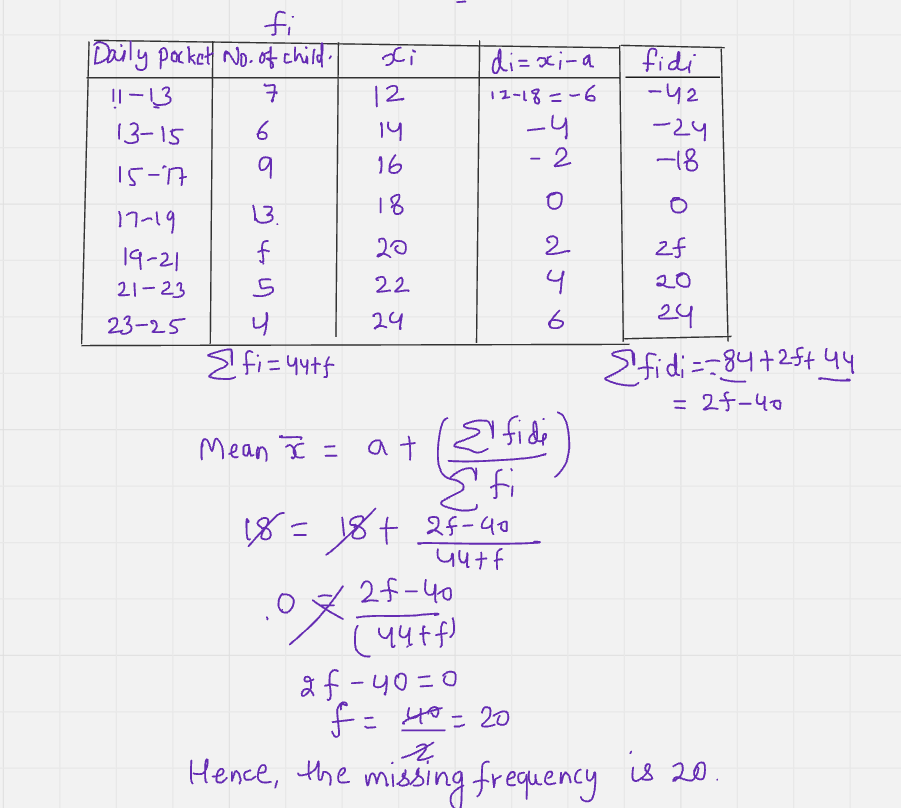 fi
Daily pocket No. of child. xi di = xi - a fidi
11-13 7 12 12-18 = -6 -42
13-15 6 14 -4 -24
15-17 9 16 -2 -18
17-19 13. 18 0 0
19-21 f 20 2 2f
21-23 5 22 4 20
23-25 4 24 6 24
∑fi = 44+f ∑fidi = -84+2f+44
= 2f-40
Mean x̄ = a + (∑fidi / ∑fi)
18 = 18 + (2f-40)/(44+f)
.0 = (2f-40)/(44+f)
2f-40=0
f = 40/2 = 20
Hence, the missing frequency is 20.